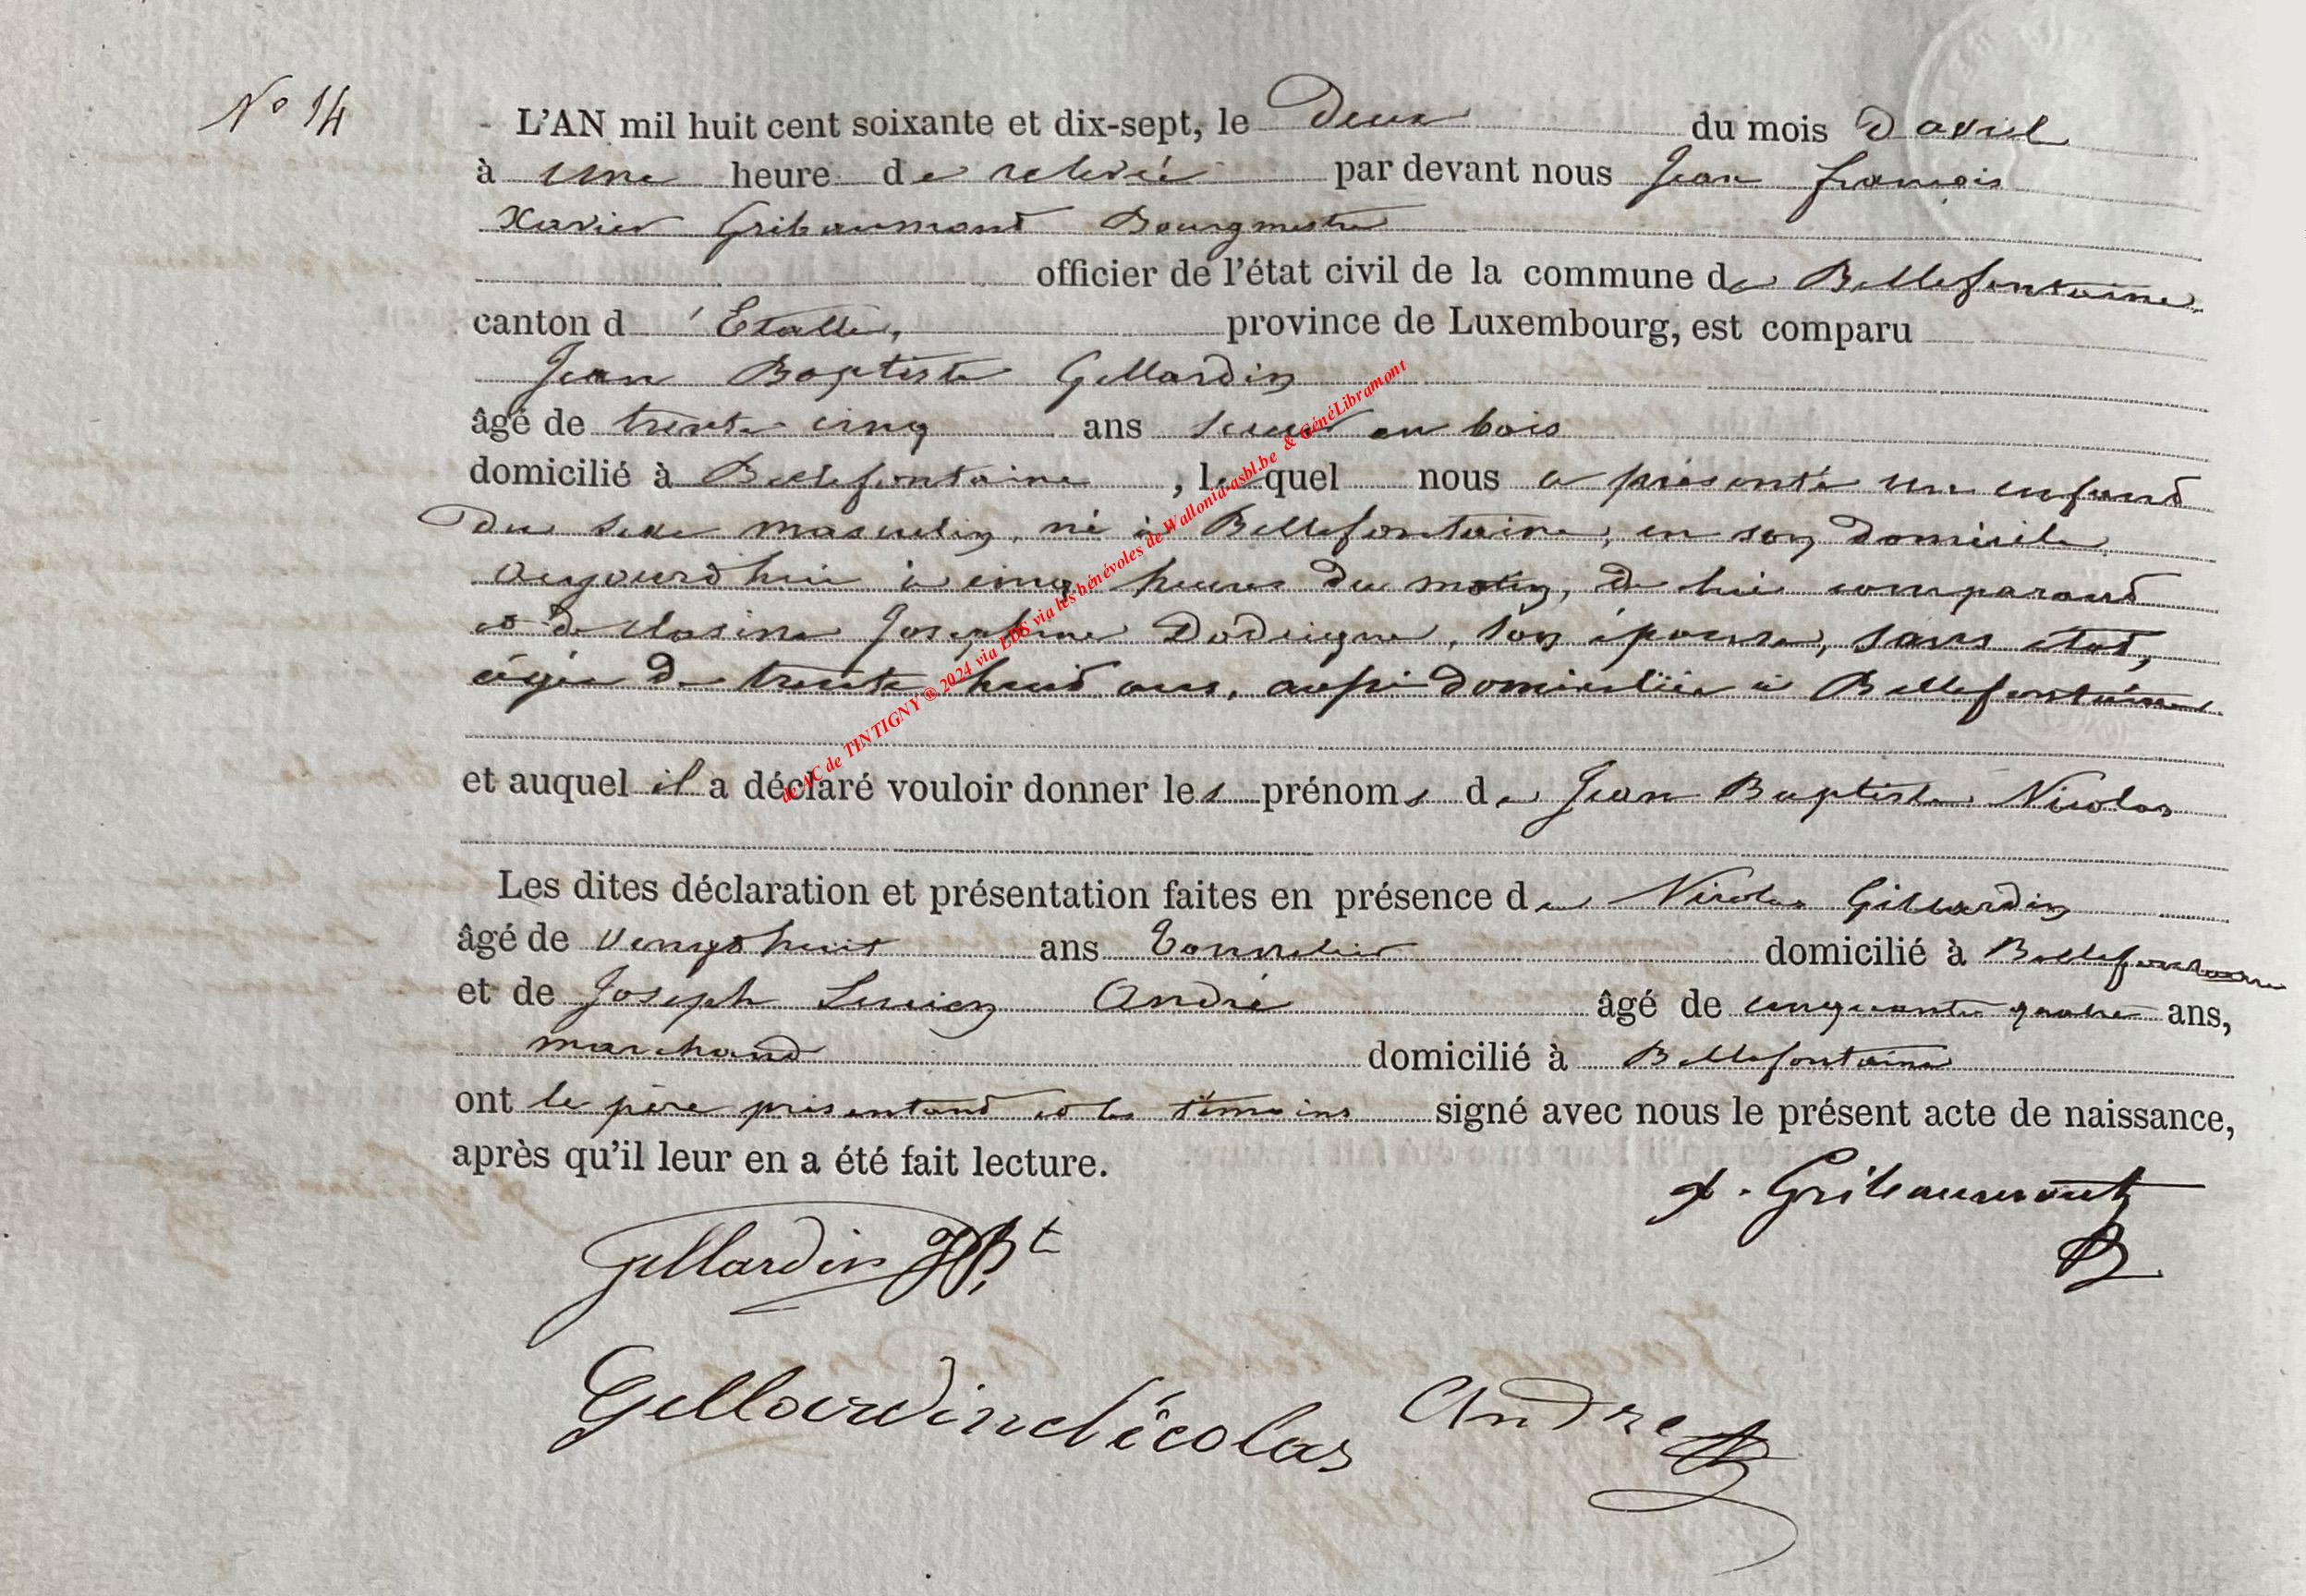 N° 14
L'AN mil huit cent soixante et dix-sept, le Deux du mois D avril
à une heure de relevée par devant nous Jean françois
Xavier Gribaumont Bourgmestre
officier de l'état civil de la commune de Bellefontaine,
canton d 'Etalle, province de Luxembourg, est comparu
Jean Baptiste Gellardin
âgé de trente cinq ans scieur en bois
domicilié à Bellefontaine , lequel nous a présenté un enfant
Du sexe masculin, né à Bellefontaine, en son Domicile
aujourd'hui à cinq heures du matin, de lui comparant
et de Joséphine Dodeigne, son épouse, sans état,
âgée de trente huit ans, aussi domiciliée à Bellefontaine
et auquel il a déclaré vouloir donner les prénoms de Jean Baptiste Nicolas
Les dites déclaration et présentation faites en présence de Nicolas Gillardin
âgé de vingt huit ans Tonnelier domicilié à Bellefontaine
et de Joseph Lucien André âgé de cinquante quatre ans,
marchand domicilié à Bellefontaine
ont le père présentant et les témoins signé avec nous le présent acte de naissance,
après qu'il leur en a été fait lecture.
X. Gribaumont
Gellardin JBt
Gellardin Nicolas André
de AC de TINTIGNY ® 2024 via LDS via les bénévoles de Wallonia-asbl.be & GénéLibramont